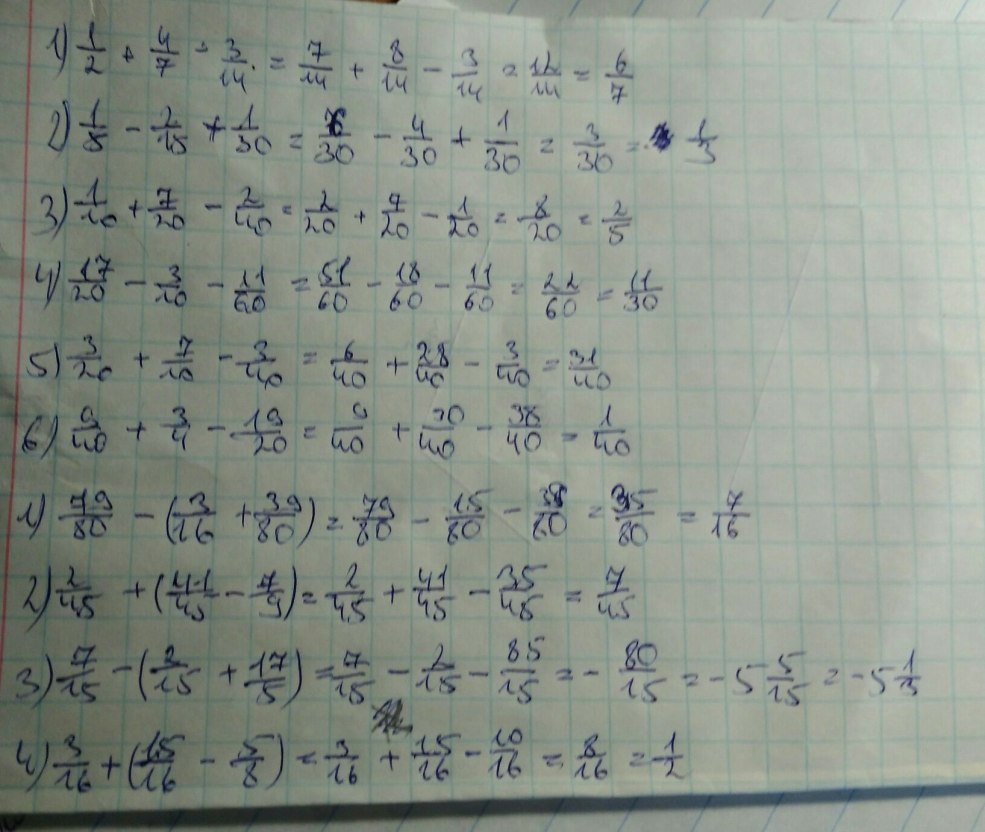 1) 1/2 + 4/7 - 3/14 = 7/14 + 8/14 - 3/14 = 12/14 = 6/7
2) 1/5 - 2/15 + 1/30 = 6/30 - 4/30 + 1/30 = 3/30 = 1/3
3) 1/10 + 7/20 - 2/40 = 2/20 + 7/20 - 1/20 = 8/20 = 2/5
4) 17/20 - 3/10 - 11/60 = 51/60 - 18/60 - 11/60 = 22/60 = 11/30
5) 3/20 + 7/10 - 3/40 = 6/40 + 28/40 - 3/40 = 31/40
6) 9/40 + 3/4 - 19/20 = 9/40 + 30/40 - 38/40 = 1/40
1) 79/80 - (3/16 + 39/80) = 79/80 - 15/80 - 39/80 = 35/80 = 7/16
2) 2/45 + (41/45 - 7/9) = 2/45 + 41/45 - 35/45 = 7/45
3) 7/15 - (2/15 + 17/5) = 7/15 - 2/15 - 85/15 = - 80/15 = -5 5/15 = -5 1/3
4) 3/16 + (15/16 - 5/8) = 3/16 + 15/16 - 10/16 = 8/16 = 1/2